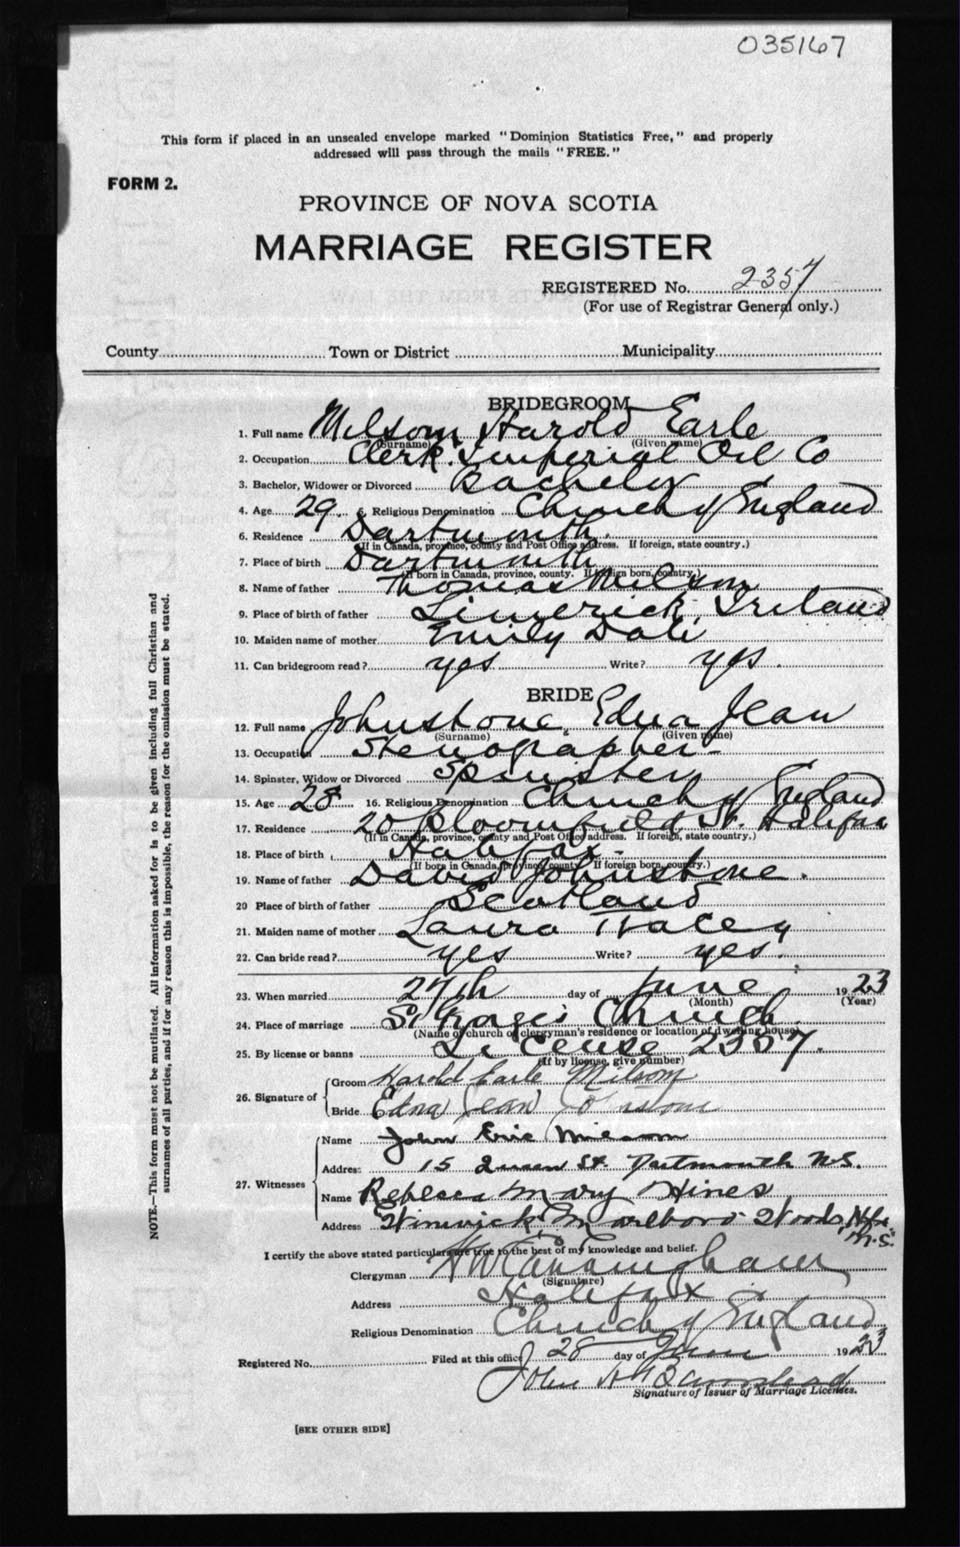 035167
This form if placed in an unsealed envelope marked "Dominion Statistics Free," and properly
addressed will pass through the mails "FREE."
FORM 2.
PROVINCE OF NOVA SCOTIA
MARRIAGE REGISTER
REGISTERED No. 2357
(For use of Registrar General only.)
County Town or District Municipality
BRIDEGROOM
1. Full name Milsom, Harold Earle
(Surname) (Given name)
2. Occupation Clerk. Imperial Oil Co
3. Bachelor, Widower or Divorced Bachelor
4. Age 29 5. Religious Denomination Church of England
6. Residence Dartmouth.
(If in Canada, province, county and Post Office address. If foreign, state country.)
7. Place of birth Dartmouth
(If born in Canada, province, county. If foreign born, country.)
8. Name of father Thomas Milsom
9. Place of birth of father Limerick, Ireland
10. Maiden name of mother Emily Dale
11. Can bridegroom read? yes Write? yes.
BRIDE
12. Full name Johnstone, Edna Jean
(Surname) (Given name)
13. Occupation Stenographer
14. Spinster, Widow or Divorced Spinster
15. Age 28 16. Religious Denomination Church of England
17. Residence 20 Bloomfield St. Halifax
(If in Canada, province, county and Post Office address. If foreign, state country.)
18. Place of birth Halifax
(If born in Canada, province, county. If foreign born, country.)
19. Name of father David Johnstone.
20 Place of birth of father Scotland
21. Maiden name of mother Laura Tracey
22. Can bride read? yes Write? yes.
23. When married 27th day of June 1923
(Month) (Year)
24. Place of marriage St George's Church
(Name of church or clergyman's residence or location of dwelling house)
25. By license or banns License 2357.
(If by license, give number)
26. Signature of Groom Harold Earle Milsom
Bride Edna Jean Johnstone
27. Witnesses Name John Eric Milsom
Address 15 Queen St. Dartmouth N.S.
Name Rebecca Mary Hines
Address Marlboro Woods, Hfx
N.S.
I certify the above stated particulars are true to the best of my knowledge and belief.
Clergyman H W Cunningham
(Signature)
Address Halifax
Religious Denomination Church of England
Registered No. Filed at this office 28 day of June 1923
John H
Signature of Issuer of Marriage Licenses.
[SEE OTHER SIDE]
NOTE.—This form must not be mutilated. All information asked for is to be given including full Christian and
surnames of all parties, and if for any reason this is impossible, the reason for the omission must be stated.